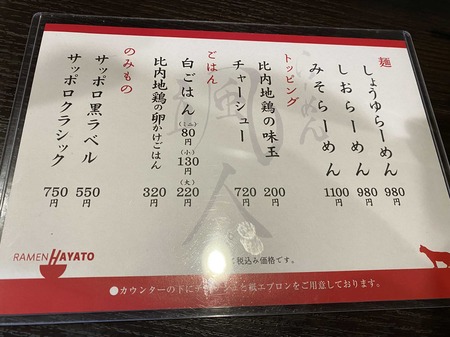 麺
しょうゆらーめん 980円
しおらーめん 980円
みそらーめん 1100円
トッピング
比内地鶏の味玉 200円
チャーシュー 720円
ごはん
白ごはん (ミニ)80円 (小)130円 (大)220円
比内地鶏の卵かけごはん 320円
のみもの
サッポロ黒ラベル 550円
サッポロクラシック 750円
税込み価格です。
RAMEN HAYATO
●カウンターの下にティッシュと紙エプロンをご用意しております。